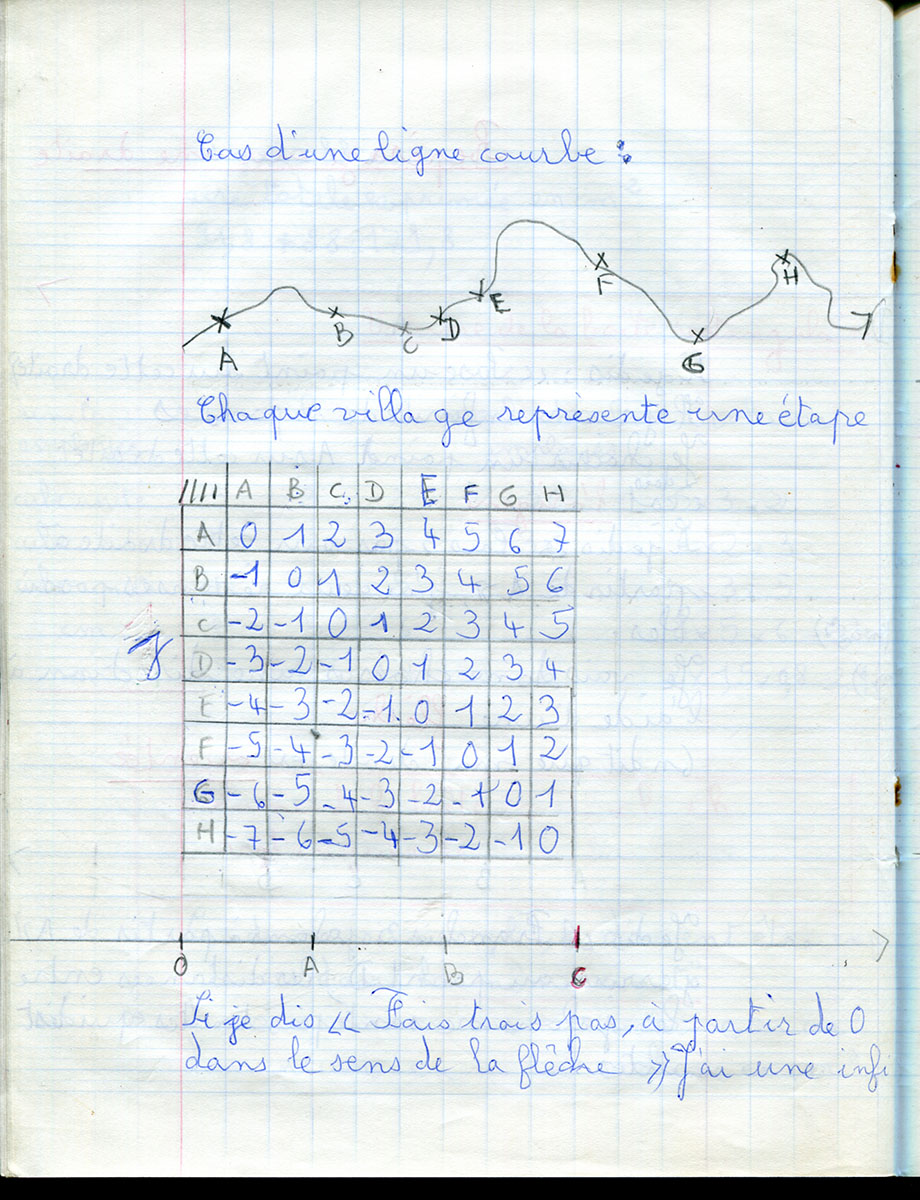 Cas d'une ligne courbe :
A B C D E F G H
Chaque village représente une étape
//// A B C D E F G H
A 0 1 2 3 4 5 6 7
B -1 0 1 2 3 4 5 6
C -2 -1 0 1 2 3 4 5
D -3 -2 -1 0 1 2 3 4
E -4 -3 -2 -1 0 1 2 3
F -5 -4 -3 -2 -1 0 1 2
G -6 -5 -4 -3 -2 -1 0 1
H -7 -6 -5 -4 -3 -2 -1 0
0 A B C
Si je dis « Fais trois pas, à partir de 0
dans le sens de la flêche » J'ai une infi